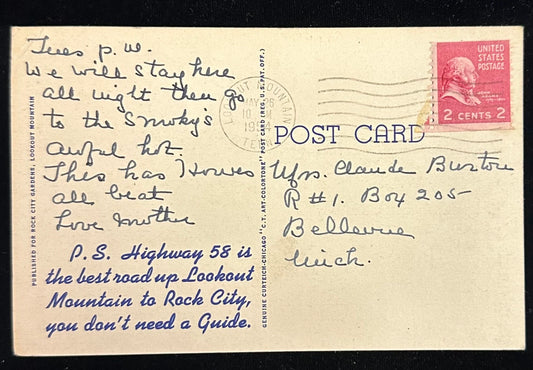 Tues p.m.
We will stay here
all night then go
to the Smoky's
Awful hot.
This has Howes
all beat
Love Mother
P.S. Highway 58 is
the best road up Lookout
Mountain to Rock City,
you don't need a Guide.
PUBLISHED FOR ROCK CITY GARDENS, LOOKOUT MOUNTAIN
GENUINE CURTEICH-CHICAGO "C.T. ART-COLORTONE" POST CARD (REG. U.S. PAT. OFF.)
LOOKOUT MOUNTAIN
MAY 26
10
1954
TENN
POST CARD
UNITED
STATES
POSTAGE
2 CENTS 2
Mrs. Claude Burton
R#1. Box 205-
Bellevue
Mich.